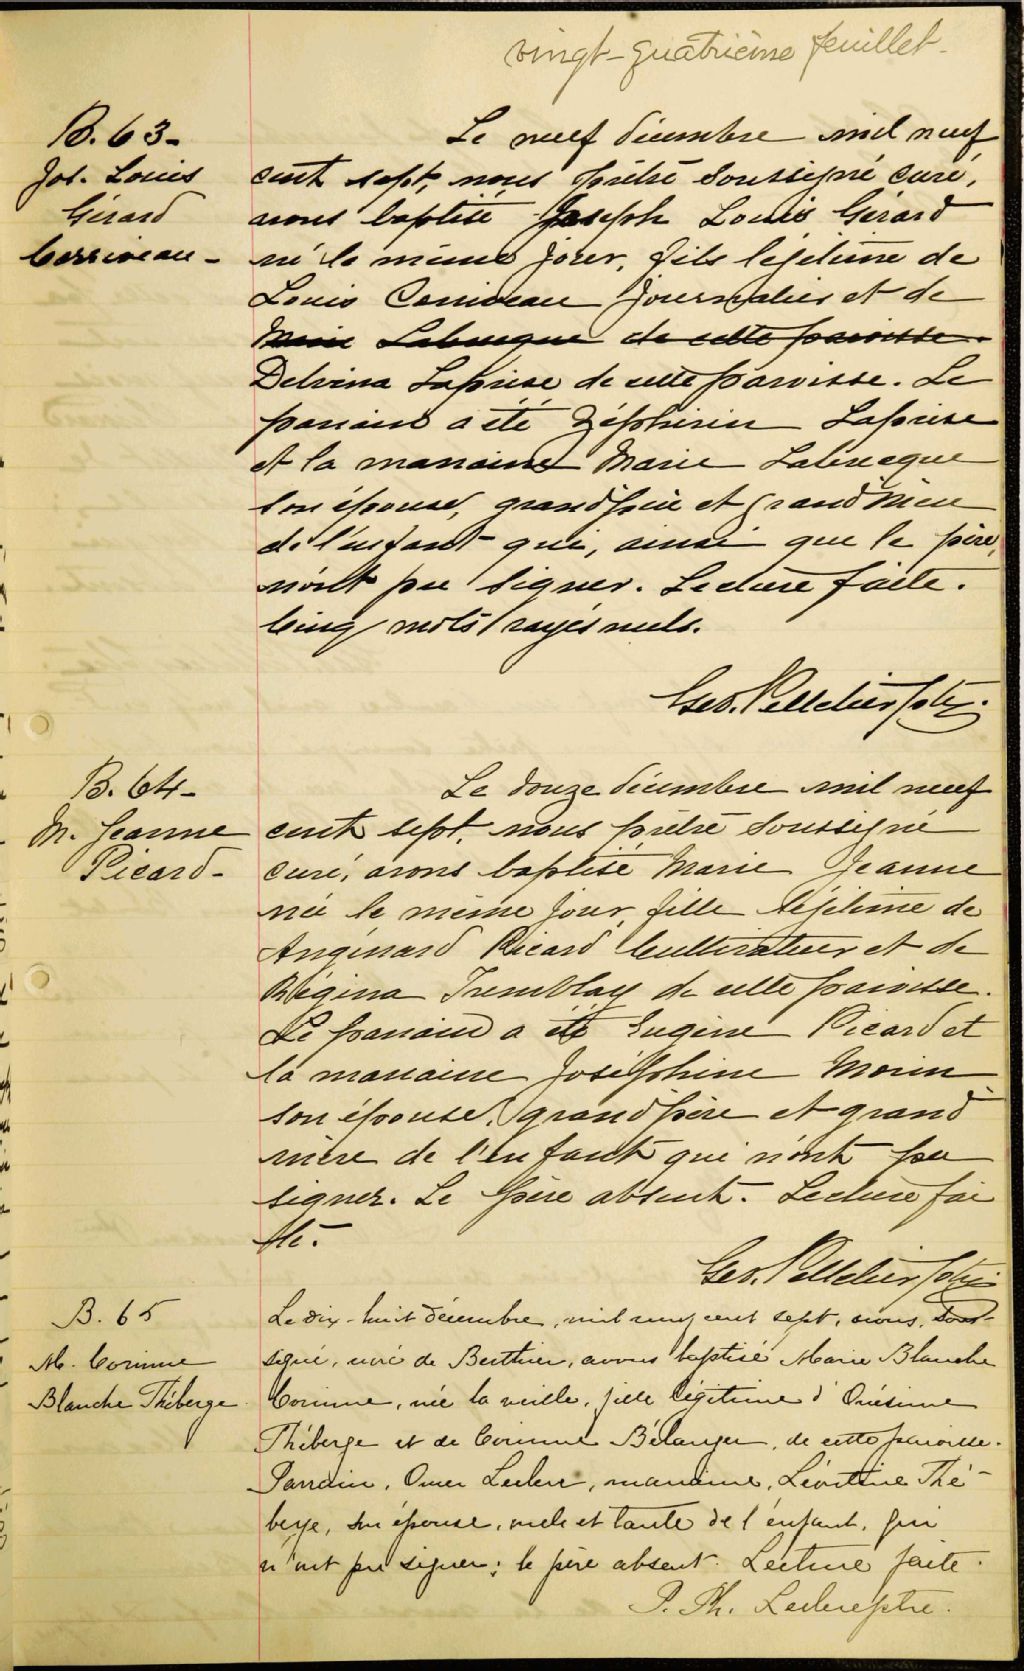 vingt-quatrième feuillet-
B. 63-
Jos. Louis
Gérard
Corriveau-
Le neuf décembre mil neuf
cent sept, nous prêtre soussigné curé,
avons baptisé Joseph Louis Gérard
né le même jour, fils légitime de
Louis Corriveau journalier et de
Marie Labrecque de cette paroisse.
Delvina Laprise de cette paroisse. Le
parrain a été Zéphirin Laprise
et la marraine Marie Labrecque
son épouse, grandpère et grand'mère
de l'enfant qui, ainsi que le père,
n'ont pu signer. Lecture faite.
Cinq mots rayés nuls.
Geo. Pelletier ptre.
B. 64-
M. Jeanne
Picard-
Le douze décembre mil neuf
cent sept, nous prêtre soussigné
curé, avons baptisé Marie Jeanne
née le même jour, fille légitime de
Picard Cultivateur et de
Régina Tremblay de cette paroisse.
Le parrain a été Eugène Picard et
la marraine Joséphine Morin
son épouse, grandpère et grand
mère de l'enfant qui n'ont pu
signer. Le père absent. Lecture fai
te.
Geo. Pelletier ptre
B. 65
M. Corinne
Blanche Théberge
Le dix-huit décembre, mil neuf cent sept, nous, sous-
signé, curé de Berthier, avons baptisé Marie Blanche
Corinne, née la veille, fille légitime d'Onésime
Théberge et de Corinne Bélanger, de cette paroisse.
Parrain, Omer Leclerc, marraine, Léontine Thé-
berge, son épouse, oncle et tante de l'enfant, qui
n'ont pu signer; le père absent. Lecture faite.
P. Ph. Leclerc ptre.